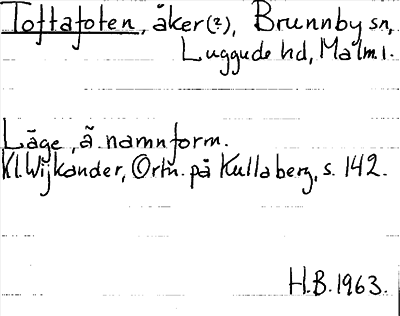 Toftafoten, åker(?), Brunnby sn,
Luggude hd, Malm.l.
Läge, ä. namnform.
Kl. Wijkander, Ortn. på Kullaberg, s. 142.
H.B. 1963.